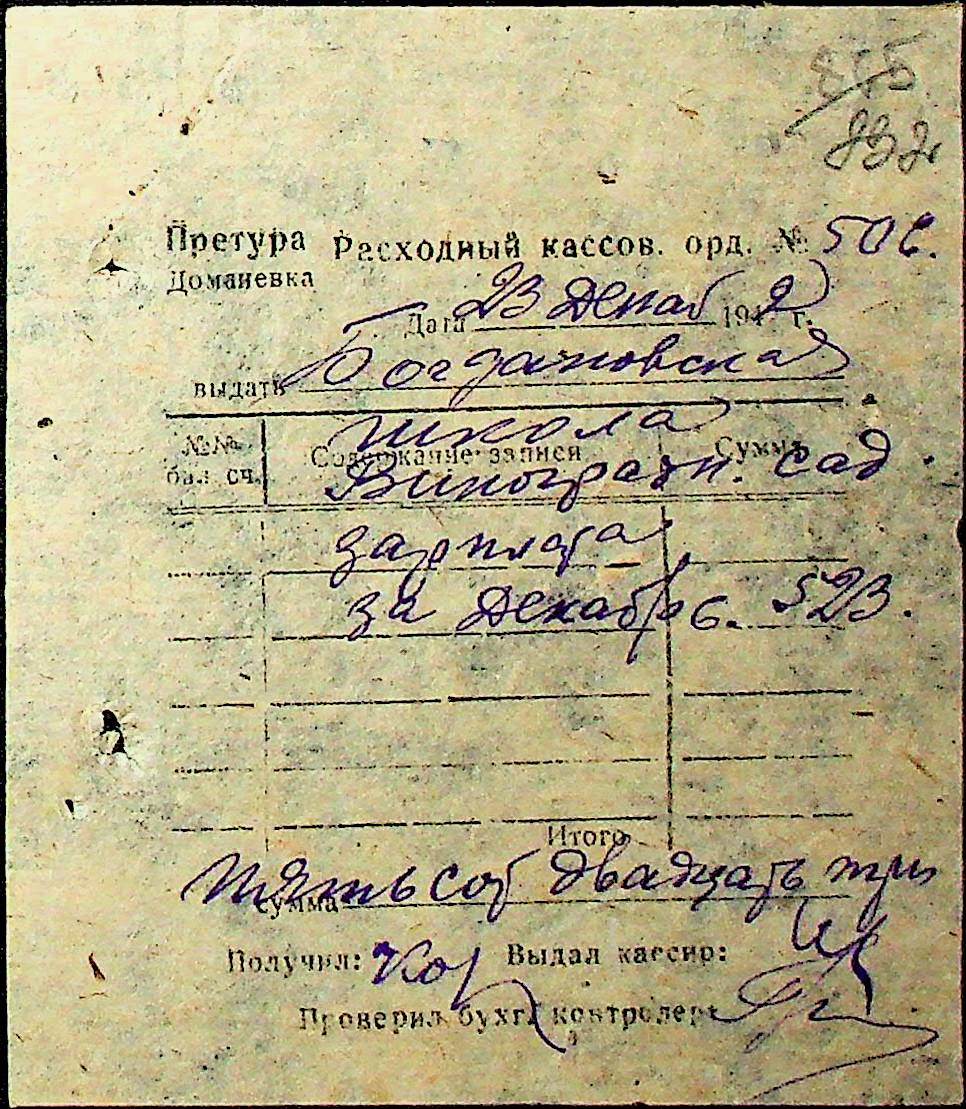 815
832
Претура Расходный кассов. орд. № 506.
Доманевка
Дата 23 Декаб 1942 г.
выдать Богдановская
школа
№№ бал. сч. Содержание записи Сумма
Виноградн. сад
зарплата
за Декабрь. 523.
Итого
пятьсот двадцать три
Сумма
Получил: Выдал кассир:
Проверил бухг. контролер: